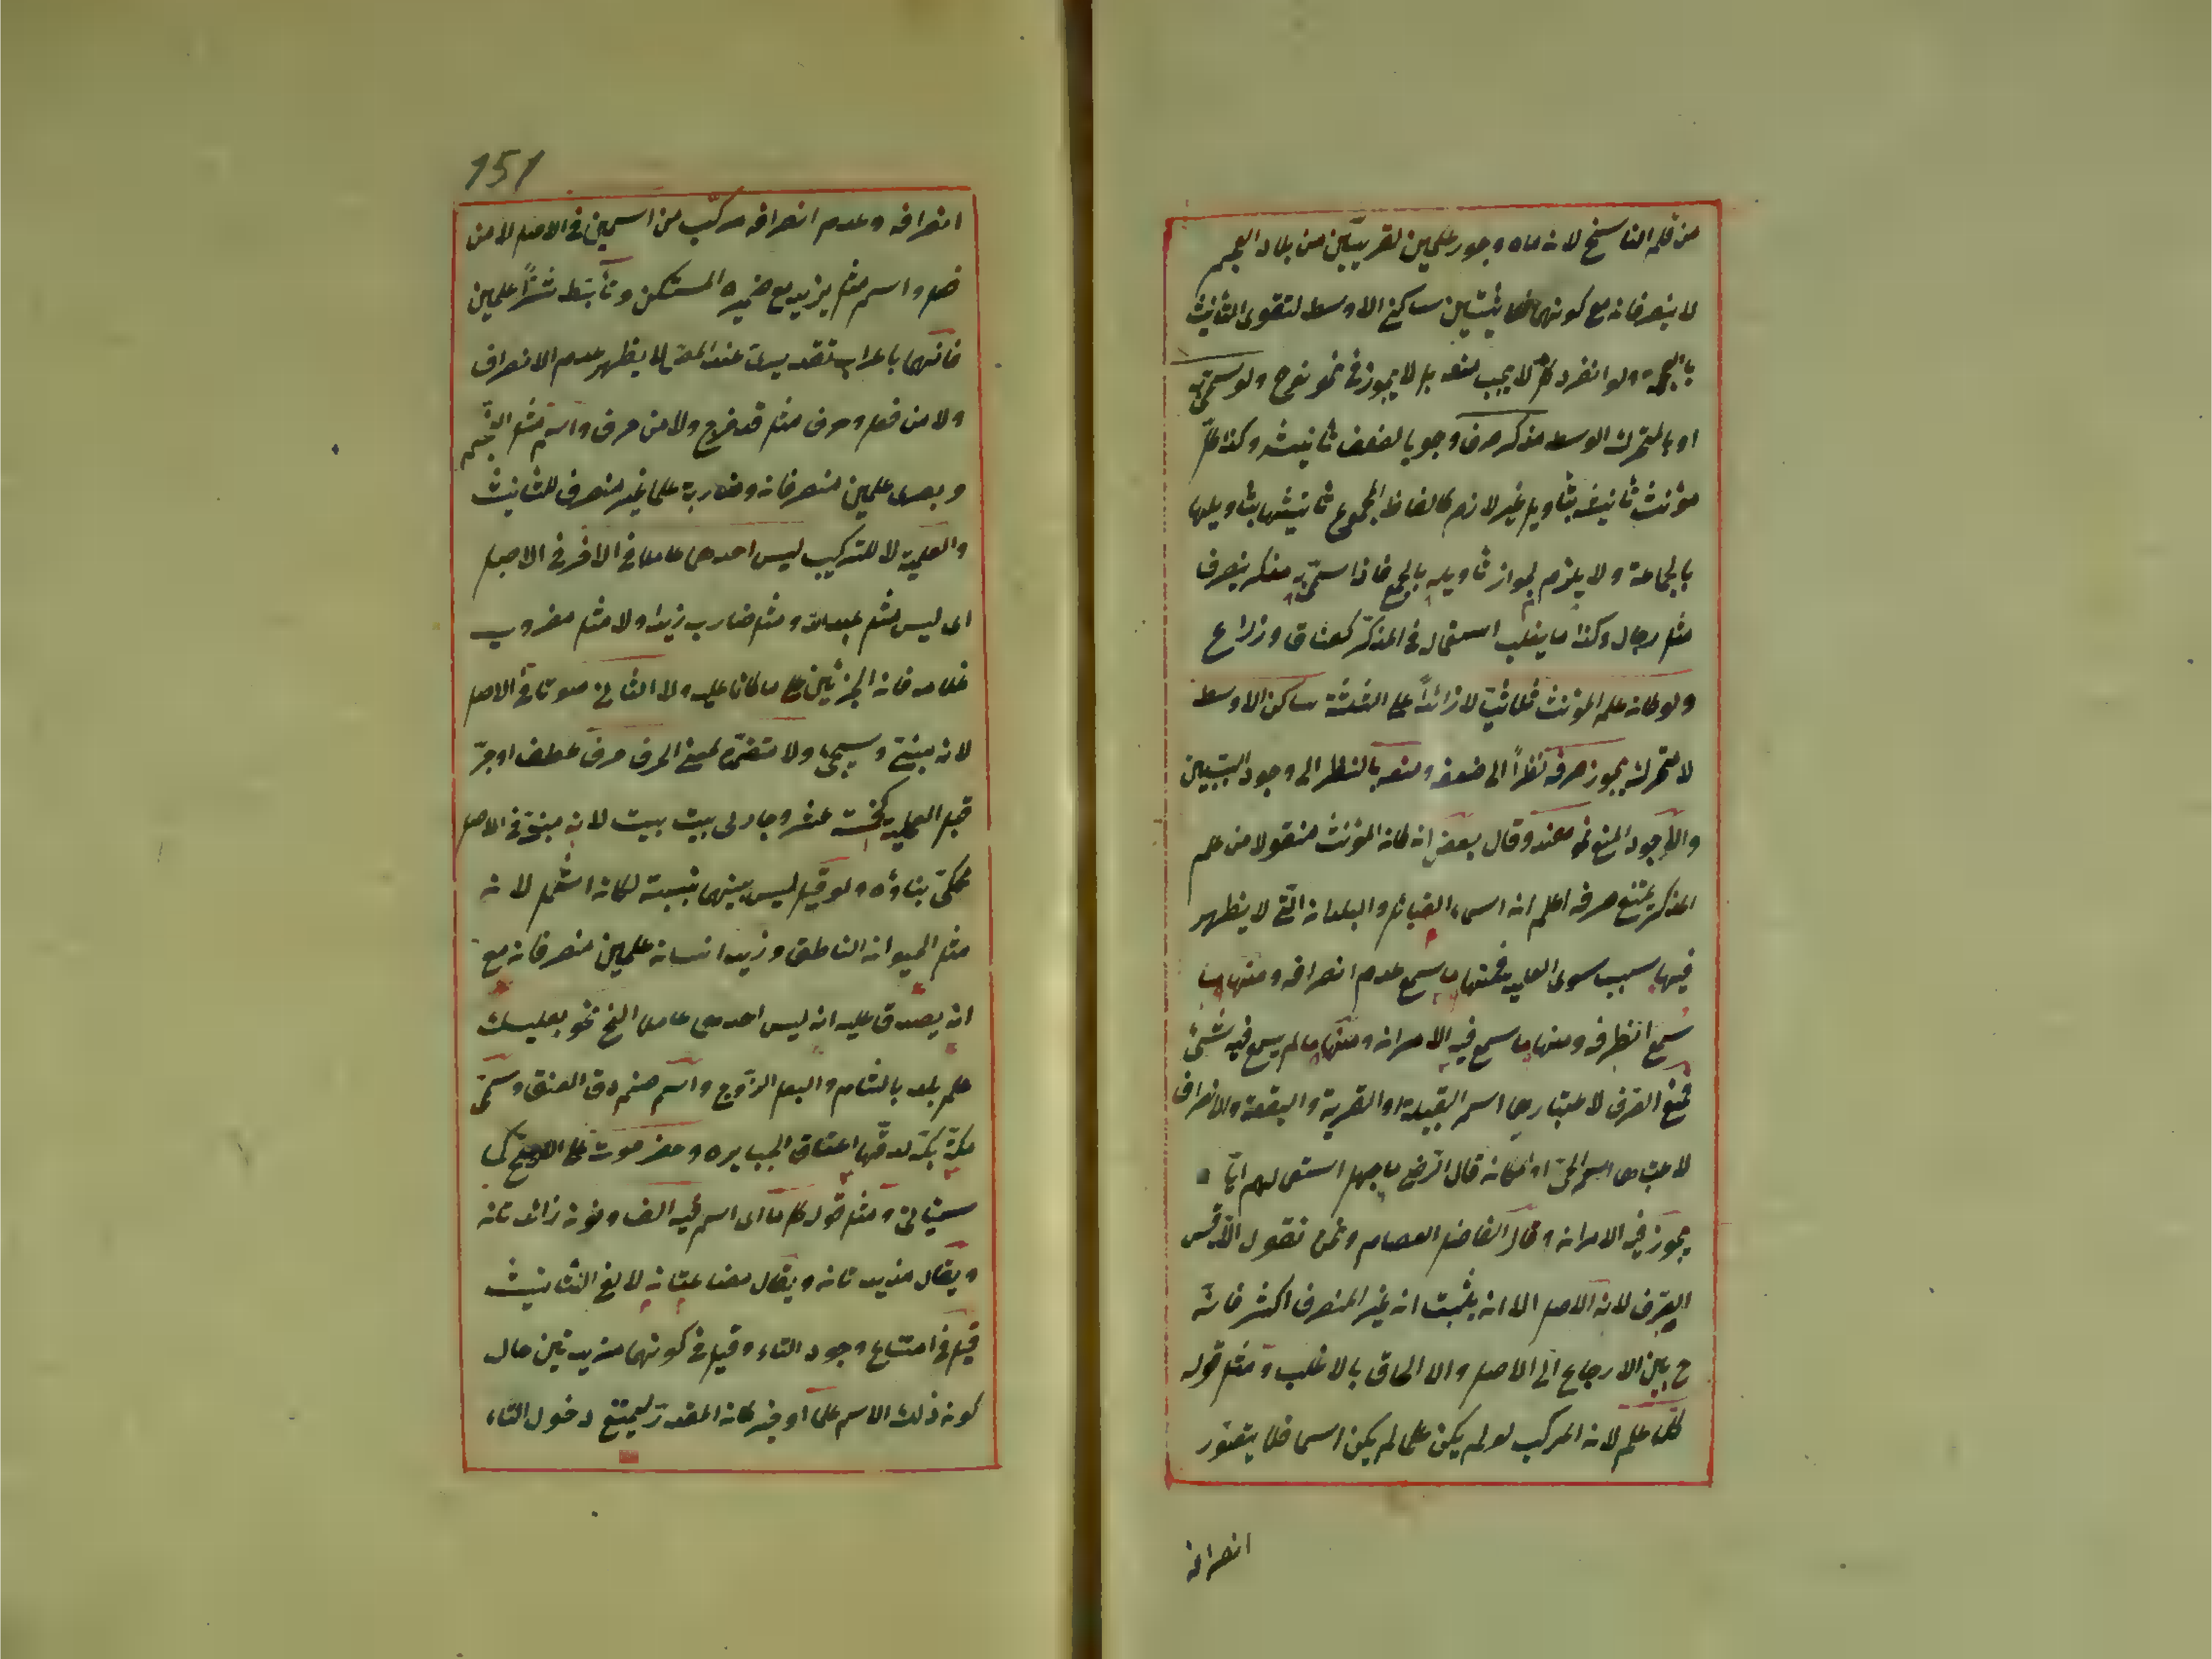 من قلم الناسخ لان ماه وجور علمين لقريتين من بلاد العجم
لا ينصرفان مع كونهما ثلاثيتين ساكني الاوسط لتقوى التأنيث
بالعجمة ولو انفرد لا يجب منعه بل لا يجوز في نحو نوح ولو سمى به
او بالمتحرك الوسط مذكر صرف وجوبا لضعف تأنيثه وكذا كل
مؤنث تأنيثه بتأويل غير لازم كالفاظ الجموع تأنيثها بتأويلها
بالجماعة ولا يلزم لجواز تأويله بالجمع فاذا سمى به مذكر ينصرف
مثل رجال وكذا ما يغلب استعمال في المذكر كعناق وذراع
ولو كان علم المؤنث ثلاثيا لا زائدا على الثلثة ساكن الاوسط
لا متحركه يجوز صرفه نظرا الى ضعفه ومنعه بالنظر الى وجود السببين
والاجود المنع نحو هند وقال بعض ان كان المؤنث منقولا من علم
المذكر يمتنع صرفه اعلم ان اسماء القبائل والبلدان التي لا يظهر
فيها سبب سوى العلمية فمنها ما سمع عدم انصرافه ومنها ما
سمع انصرافه ومنها ما سمع فيه الامران ومنها ما لم يسمع فيه شئ
فمنع الصرف لاعتبارها اسم القبيلة او القرية والبقعة والانصراف
لاعتبارها اسم الحي او المكان قال الرضي ما جهل استعمالهم اياه
يجوز فيه الامران وقال الفاضل العصام ونحن نقول الاقيس
الصرف لانه الاصل الا ان يثبت ان غير المنصرف اكثر فانه
ح بين الارجاع الى الاصل والالحاق بالاغلب ومثل قوله
كل علم لان المركب لو لم يكن علما لم يكن اسما فلا يتصور
انصرافه
151
انصرافه وعدم انصرافه مركب من اسمين في الاصل لا من
فعل واسم مثل يزيد مع ضميره المستكن وتأبط شرا علمين
فانهما باعراب تقديرى عند المص لا يظهر عدم الانصراف
ولا من فعل وحرف مثل قد خرج ولا من حرف واسم مثل النجم
وبصرى علمين منصرفان وضاربة علما غير منصرف للتأنيث
والعلمية لا للتركيب ليس احدهما عاملا في الاخر في الاصل
اى ليس مثل عبد الله ومثل ضارب زيدا ولا مثل مضروب
غلامه فان الجزئين على ما كانا عليه ولا الثاني صوتا في الاصل
لانه مبني وسيجئ ولا متضمنة لمعنى الحرف حرف عطف او جر
قبل العلمية كخمسة عشر وجارى بيت بيت لانه مبني في الاصل
محكي بناؤه ولو قيل ليس بينهما نسبة لكان اشمل لان
مثل الحيوان الناطق وزيد انسان علمين منصرفان مع
انه يصدق عليه انه ليس احدهما عاملا الخ نحو بعلبك
علم بلد بالشام والبعل الزوج واسم صنم ودق العنق وسمى
مكة بكة لدقها اعناق الجبابرة وحضرموت على الاصح كما
سيأتي ومثل قوله كل ما اى اسم فيه الف ونون زائدتان
ويقال مزيدتان ويقال مضارعتان لالفي التأنيث
قيل في امتناع وجود التاء وقيل في كونهما مزيدتين حال
كون ذلك الاسم علما او فيه كان المقدر ليمتنع دخول التاء